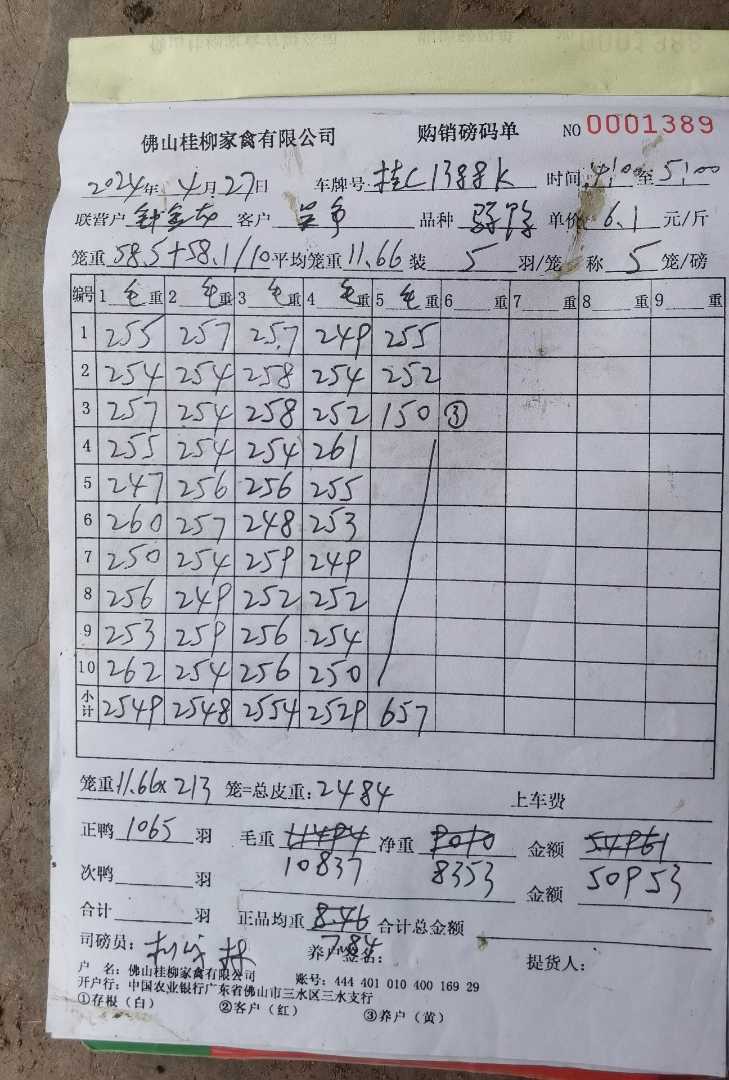 佛山桂柳家禽有限公司 购销磅码单 NO 0001389
2024年 4月27日 车牌号 桂C1388K 时间 4:00 至 5:00
联营户 客户 品种 单价 6.1 元/斤
笼重 58.5+58.1/10 平均笼重 11.66 装 5 羽/笼 称 5 笼/磅
编号 1 毛重 2 毛重 3 毛重 4 毛重 5 毛重 6 重 7 重 8 重 9 重
1 255 257 257 249 255
2 254 254 258 254 252
3 257 254 258 252 150 ③
4 255 254 254 261
5 247 256 256 255
6 260 257 248 253
7 250 254 259 249
8 256 249 252 252
9 253 259 256 254
10 262 254 256 250
小计 2549 2548 2554 2529 657
笼重 11.66×213 笼=总皮重: 2484 上车费
正鸭 1065 羽 毛重 11494 净重 9010 金额 54961
10837 8353 50953
次鸭 羽 金额
合计 羽 正品均重 8.46 合计总金额
7.84
司磅员: 养户签名: 提货人:
户 名: 佛山桂柳家禽有限公司 账号: 444 401 010 400 169 29
开户行: 中国农业银行广东省佛山市三水区三水支行
①存根(白) ②客户(红) ③养户(黄)